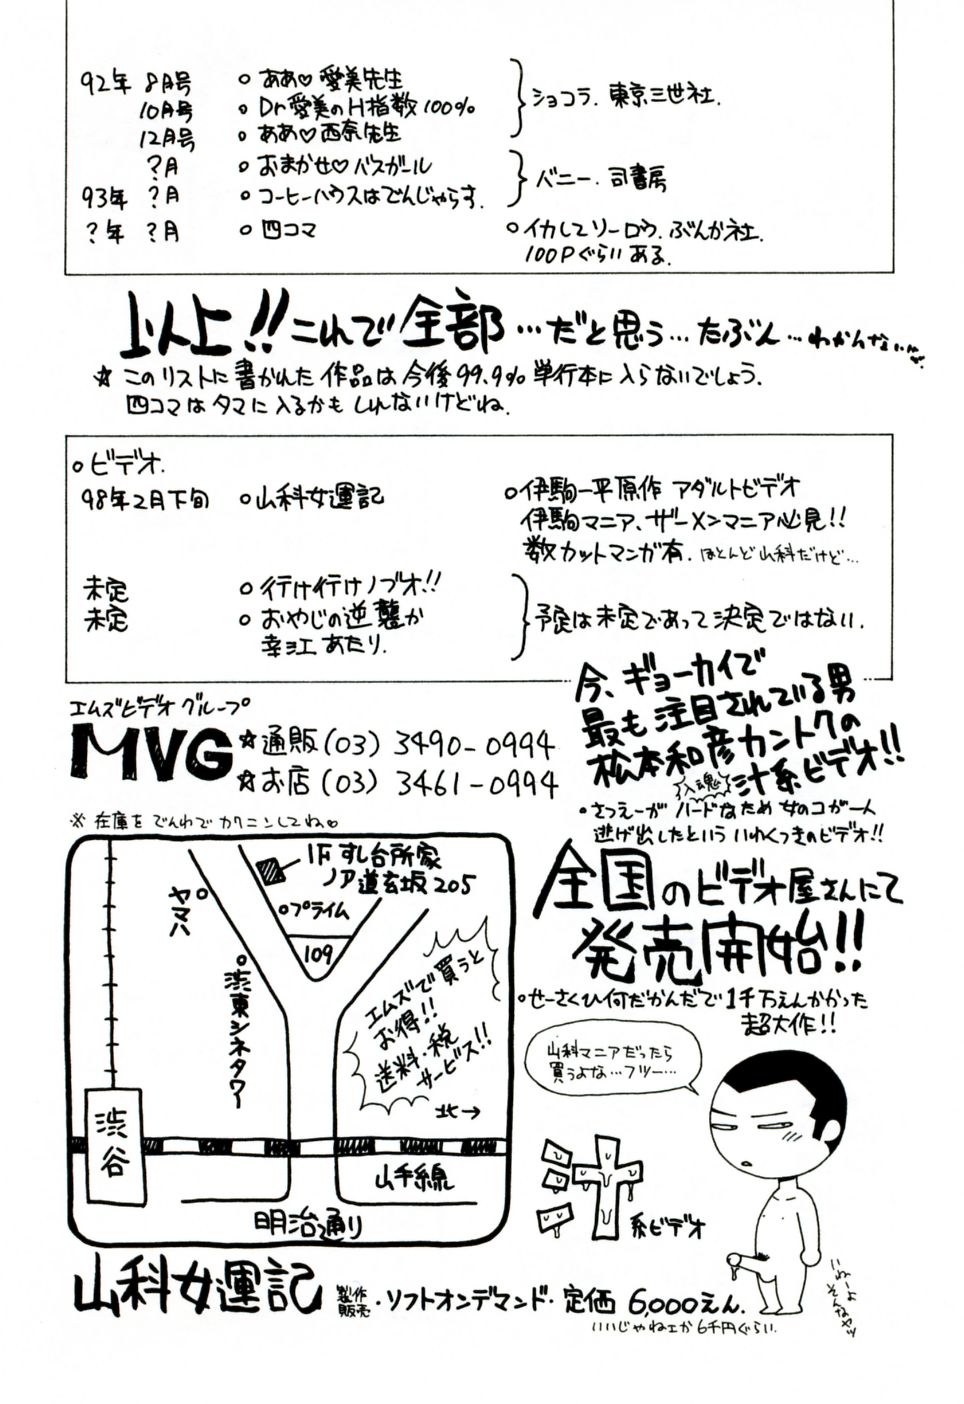 92年 8月号 ○ ああ♡愛美先生
10月号 ○ Dr愛美のH指数100%
12月号 ○ ああ♡西奈先生
ショコラ. 東京三世社.
?月 ○ おまかせ♡バスガール
93年 ?月 ○ コーヒーハウスはでんじゃらす.
バニー. 司書房
?年 ?月 ○ 四コマ ○ イカしてソーロウ. ぶんか社.
100Pぐらいある.
以上!!これで全部…だと思う…たぶん…わかんない
☆ このリストに書かれた作品は今後99.9%単行本に入らないでしょう.
四コマはタマに入るかもしれないけどね.
○ビデオ.
98年2月下旬 ○山科女運記 ○伊駒一平原作 アダルトビデオ
伊駒マニア、ザーメンマニア必見!!
数カットマンガ有. ほとんど山科だけど…
未定 ○ 行け行けノブオ!!
未定 ○ おやじの逆襲か
幸江あたり.
予定は未定であって決定ではない.
エムズビデオグループ
MVG ☆通販(03) 3490-0994
☆お店(03) 3461-0994
※ 在庫をでんわでカクニンしてね♡
今、ギョーカイで
最も注目されている男
松本和彦カントクの
入魂 汁系ビデオ!!
•さつえーがハードなため女のコが一人
逃げ出したといういわくつきのビデオ!!
全国のビデオ屋さんにて
発売開始!!
○せーさくひ何だかんだで1千万えんかかった
超大作!!
1Fすし台所家
ノア道玄坂205
ヤマハ
プライム
109
渋東シネタワー
エムズで買うと
お得!!
送料・税
サービス!!
北→
渋谷
山手線
明治通り
山科マニアだったら
買うよな…フツー…
汁系ビデオ
いねーよ
そんなヤツ
山科女運記 製作販売・ソフトオンデマンド・定価 6,000えん.
いいじゃねェか6千円ぐらい.